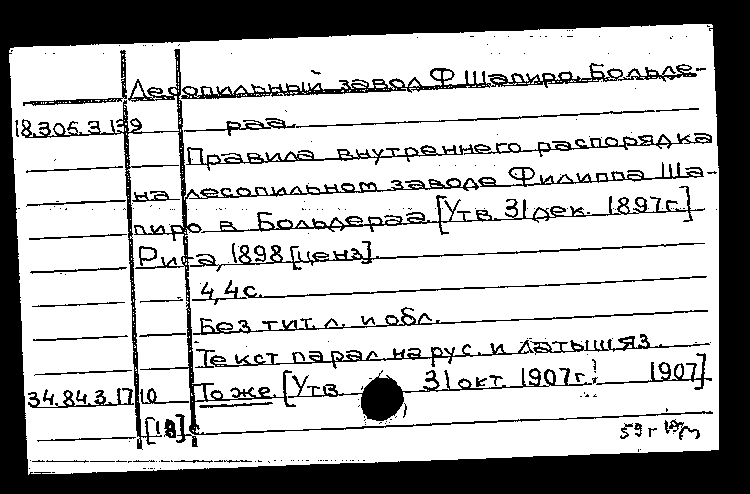 Лесопильный завод Ф. Шапиро. Больде-
18.305.3.139 раа.
Правила внутреннего распорядка
на лесопильном заводе Филиппа Ша-
пиро в Больдераа. [Утв. 31 дек. 1897 г.]
Рига, 1898 [ценз].
4,4 с.
Без тит. л. и обл.
Текст парал. на рус. и латыш. яз.
34.84.3.1710 То же. [Утв 31 окт. 1907 г.! 1907].
59 г